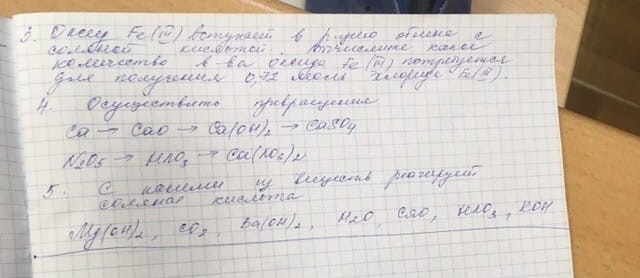 3. Оксид Fe(III) вступает в р-цию обмена с
соляной кислотой. Вычислите какое
количество в-ва оксида Fe(III) потребуется
для получения 0,72 моль хлорида Fe(III).
4. Осуществить превращения
Ca → CaO → Ca(OH)2 → CaSO4
N2O5 → HNO3 → Ca(NO3)2
5. С какими из веществ реагирует
соляная кислота
Mg(OH)2, CO2, Ba(OH)2, H2O, CaO, HNO3, KOH